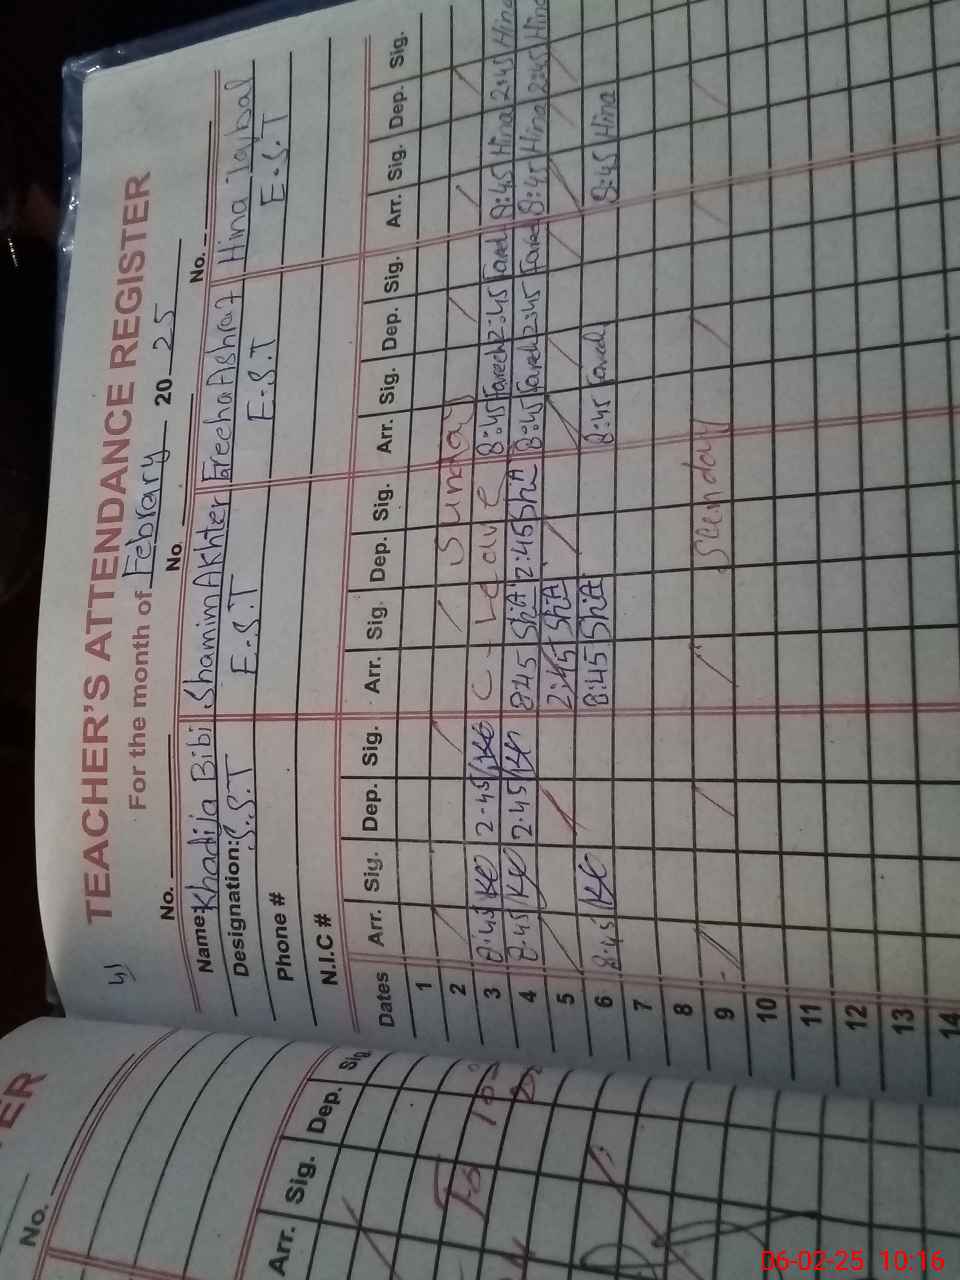 TEACHER'S ATTENDANCE REGISTER
For the month of Febrary 20 25
No. No. No.
Name: Khadija Bibi Shamim Akhter Freeha Ashraf Hina
Designation: S.S.T E.S.T E.S.T E.S.T
Phone #
N.I.C #
Dates Arr. Sig. Dep. Sig. Arr. Sig. Dep. Sig. Arr. Sig. Dep. Sig. Arr. Sig. Dep. Sig.
1
2 Sunday
3 8:45 2.45 C-Leave 8:45 Fareeh 2:45 Fareh 8:45 Hina 2:45 Hina
4 8.45 2.45 8:45 Sh.A 2:45 Sh.A 8:45 Fareh 2:45 Fareh 8:45 Hina 2:45 Hina
5 2:45 Sh.A
6 8.45 8:45 Sh.A 8:45 Fareh 8:45 Hina
7
8
9 Sunday
10
11
12
13
14
ER
No.
Arr. Sig. Dep. Sig.
06-02-25 10:16